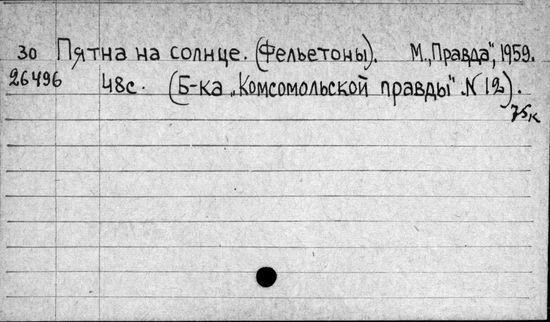 30 Пятна на солнце. (Фельетоны). М., „Правда", 1959.
26496 48с. (Б-ка „Комсомольской правды" N 12).
75к